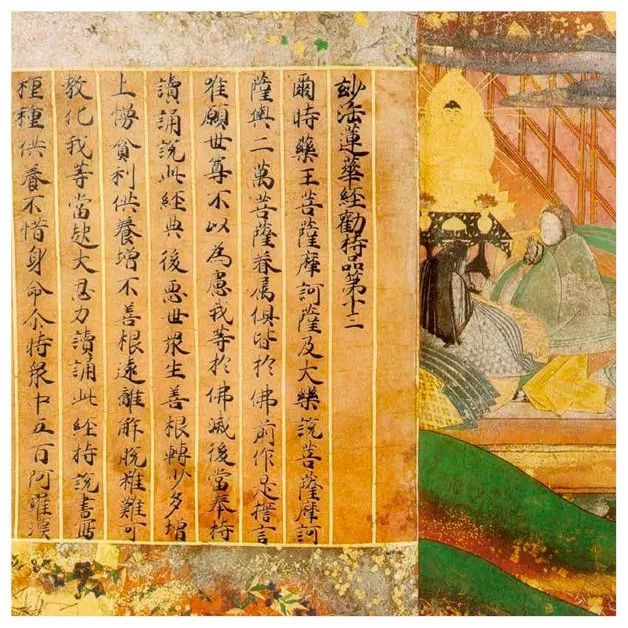 玅法蓮華經勸持品第十三
爾時藥王菩薩摩訶薩及大樂說菩薩摩訶
薩與二萬菩薩眷屬俱皆於佛前作是誓言
唯願世尊不以為慮我等於佛滅後當奉持
讀誦說此經典後惡世眾生善根轉少多增
上慢貪利供養增不善根遠離解脫雖難可
教化我等當起大忍力讀誦此經持說書寫
種種供養不惜身命尒時眾中五百阿羅漢